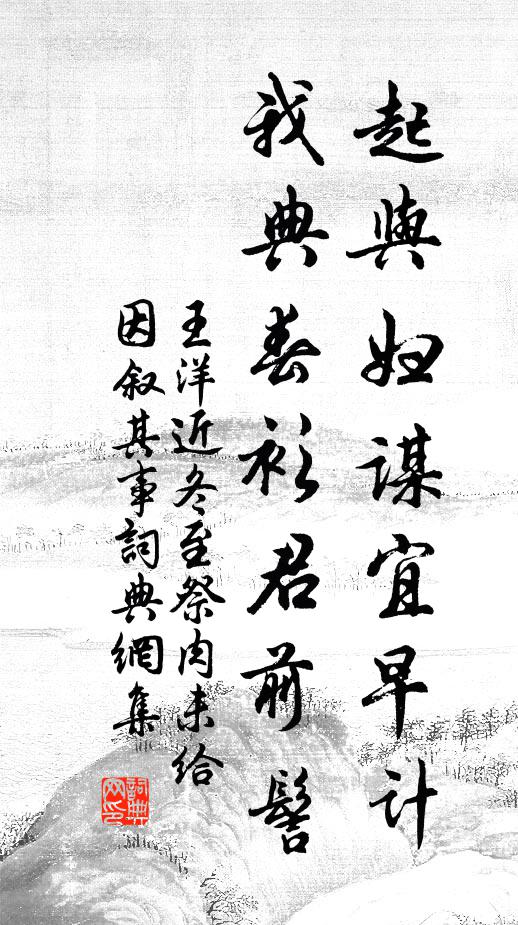 起與婦謀宜早計
我典春衫君前髻
王洋近冬至祭肉未給
因叙其事詞典網集
詞典
网印